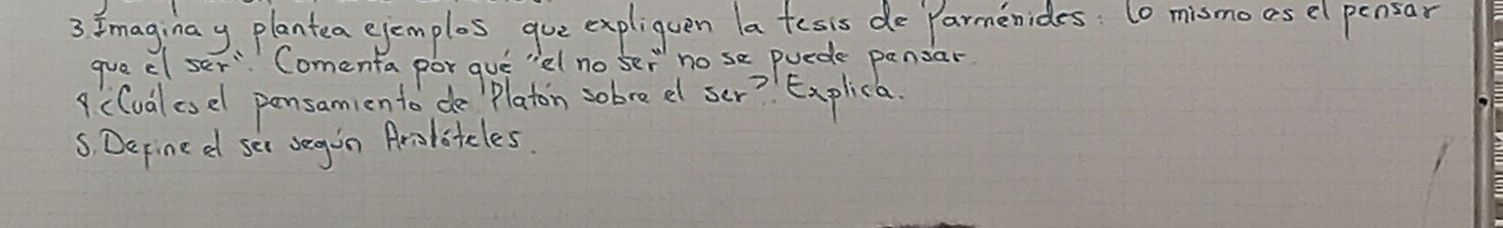 3. Imagina y plantea ejemplos que expliquen la tesis de Parménides: lo mismo es el pensar
que el ser". Comenta por qué "el no ser" no se puede pensar.
4. ¿Cuál es el pensamiento de Platón sobre el ser? Explica.
5. Define el ser según Aristóteles.